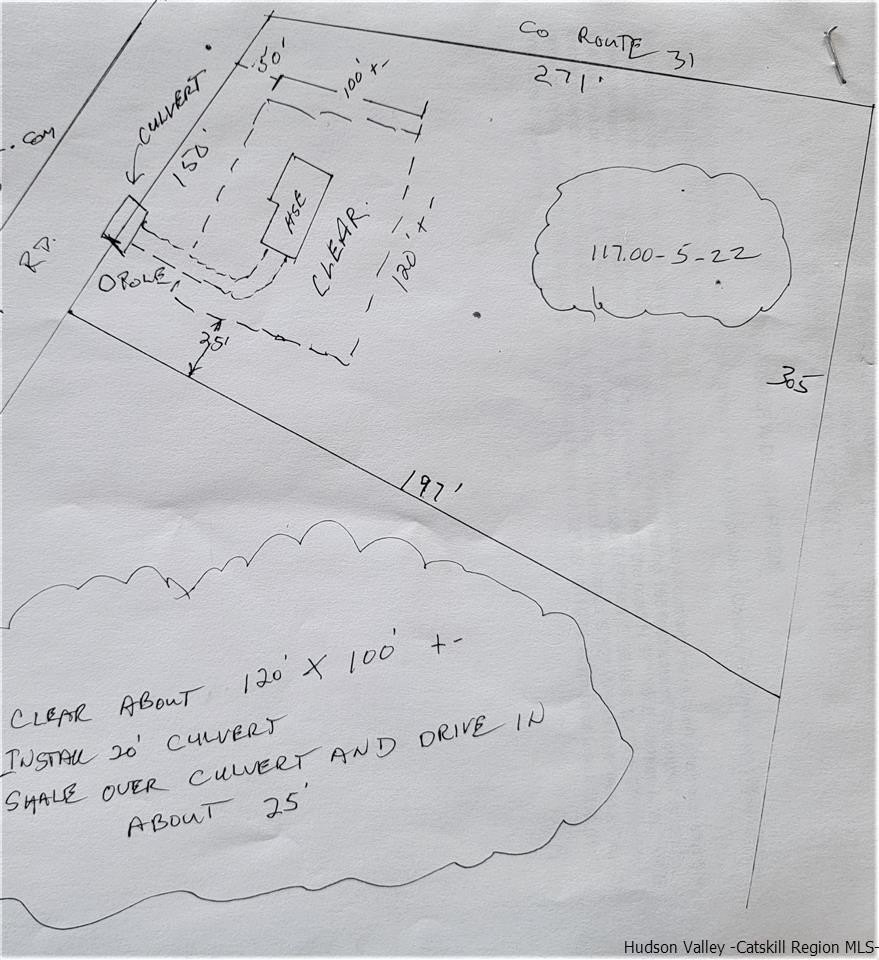 CO ROUTE 31
271'
50'
100' +-
CULVERT
150'
HSE
CLEAR.
120' +-
117.00-5-22
RD.
O POLE
35'
305
197'
CLEAR ABOUT 120' X 100' +-
INSTALL 20' CULVERT
SHALE OVER CULVERT AND DRIVE IN
ABOUT 25'
Hudson Valley -Catskill Region MLS-